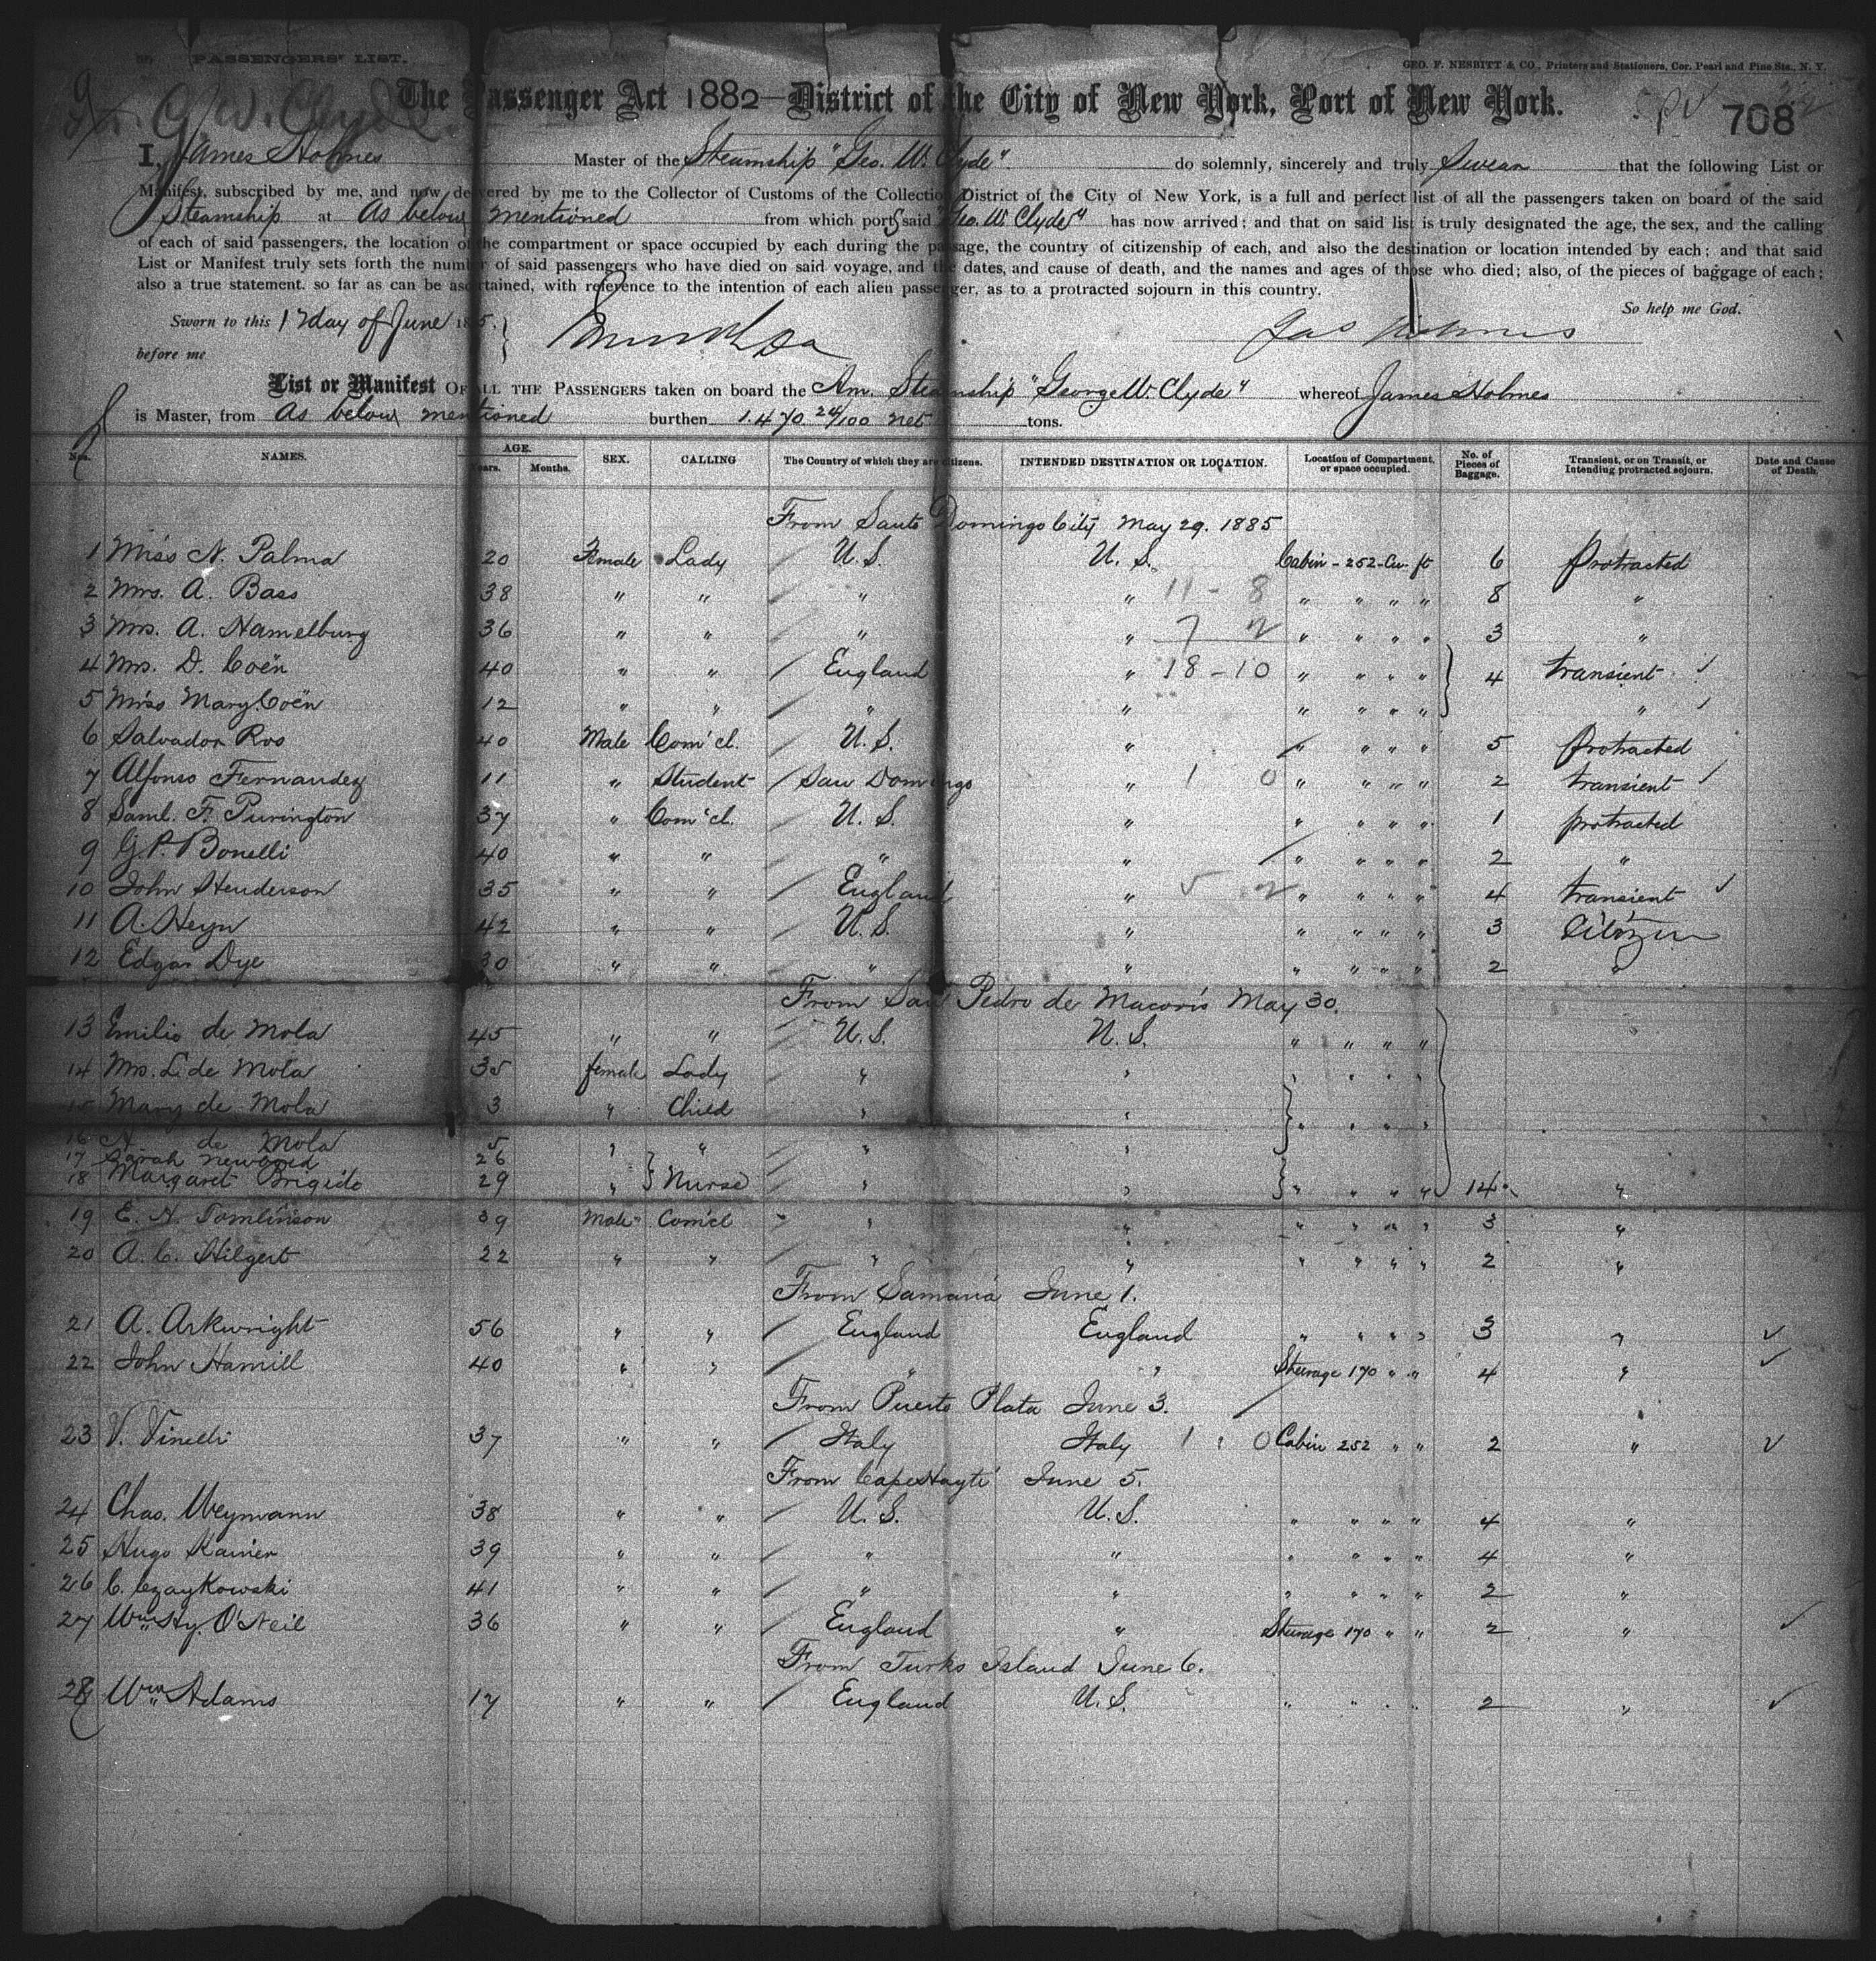 PASSENGERS' LIST.
GEO. F. NESBITT & CO., Printers and Stationers, Cor. Pearl and Pine Sts., N. Y.
G. W. Clyde
The Passenger Act 1882—District of the City of New York, Port of New York.
708
I, James Holmes Master of the Steamship "Geo. W. Clyde" do solemnly, sincerely and truly Swear that the following List or
Manifest, subscribed by me, and now delivered by me to the Collector of Customs of the Collection District of the City of New York, is a full and perfect list of all the passengers taken on board of the said
Steamship at As below mentioned from which ports said "Geo. W. Clyde" has now arrived; and that on said list is truly designated the age, the sex, and the calling
of each of said passengers, the location of the compartment or space occupied by each during the passage, the country of citizenship of each, and also the destination or location intended by each; and that said
List or Manifest truly sets forth the number of said passengers who have died on said voyage, and the dates, and cause of death, and the names and ages of those who died; also, of the pieces of baggage of each;
also a true statement. so far as can be ascertained, with reference to the intention of each alien passenger, as to a protracted sojourn in this country.
So help me God.
Sworn to this 12 day of June 1885.
before me
Jas Holmes
List or Manifest OF ALL THE PASSENGERS taken on board the Am. Steamship "George W. Clyde" whereof James Holmes
is Master, from As below mentioned burthen 1.470 24/100 net tons.
Nos. NAMES. AGE. Years. Months. SEX. CALLING The Country of which they are citizens. INTENDED DESTINATION OR LOCATION. Location of Compartment, or space occupied. No. of Pieces of Baggage. Transient, or on Transit, or Intending protracted sojourn. Date and Cause of Death.
From Santo Domingo City May 29. 1885
1 Miss N. Palma 20 Female Lady / U. S. U. S. Cabin - 252 - Cu. ft 6 Protracted
2 Mrs. A. Bass 38 " " / " " 11 - 8 " " " " 8 "
3 Mrs. A. Hamelburg 36 " " / " " 7 2 " " " " 3 "
4 Mrs. D. Coën 40 " " / England " 18 - 10 " " " " 4 transient ✓
5 Miss Mary Coën 12 " " / " " " " " " " ✓
6 Salvador Ros 40 Male Com'cl. / U. S. " " " " " 5 protracted
7 Alfonso Fernandez 11 " Student / San Domingo " 1 0 " " " " 2 transient ✓
8 Saml. F. Purington 37 " Com'cl. / U. S. " " " " " 1 protracted
9 G. P. Bonelli 40 " " / " " " " " " 2 "
10 John Henderson 35 " " / England " 5 2 " " " " 4 transient ✓
11 A. Heyn 42 " " / U. S. " " " " " 3 Citizen
12 Edgar Dye 30 " " / " " " " " " 2 "
From San Pedro de Macoris May 30.
13 Emilio de Mola 45 " " / U. S. U. S. " " " "
14 Mrs. L. de Mola 35 female Lady / " " " " " "
15 Mary de Mola 3 " Child / " " " " " "
16 de Mola 5 " " / " "
17 Sarah 26
18 Margaret Brigido 29 " Nurse / " " " " " " 14 "
19 E. A. Tomlinson 39 Male Com'cl / " " " " " " 3 "
20 A. C. Hilgert 22 " " / " " " " " " 2 "
From Samana June 1.
21 A. Arkwright 56 " " / England England " " " " 3 " ✓
22 John Hamill 40 " " / " " Steerage 170 " " 4 " ✓
From Puerto Plata June 3.
23 V. Vinelli 37 " " / Italy Italy 1 0 Cabin 252 " " 2 " ✓
From Cape Hayti June 5.
24 Chas. Weymann 38 " " / U. S. U. S. " " " " 4 "
25 Hugo Kainer 39 " " / " " " " " " 4 "
26 C. Czaykowski 41 " " / " " " " " " 2 "
27 Wm. Hy. O'Neil 36 " " / England " Steerage 170 " " 2 " ✓
From Turks Island June 6.
28 Wm. Adams 17 " " / England U. S. " " " " 2 " ✓